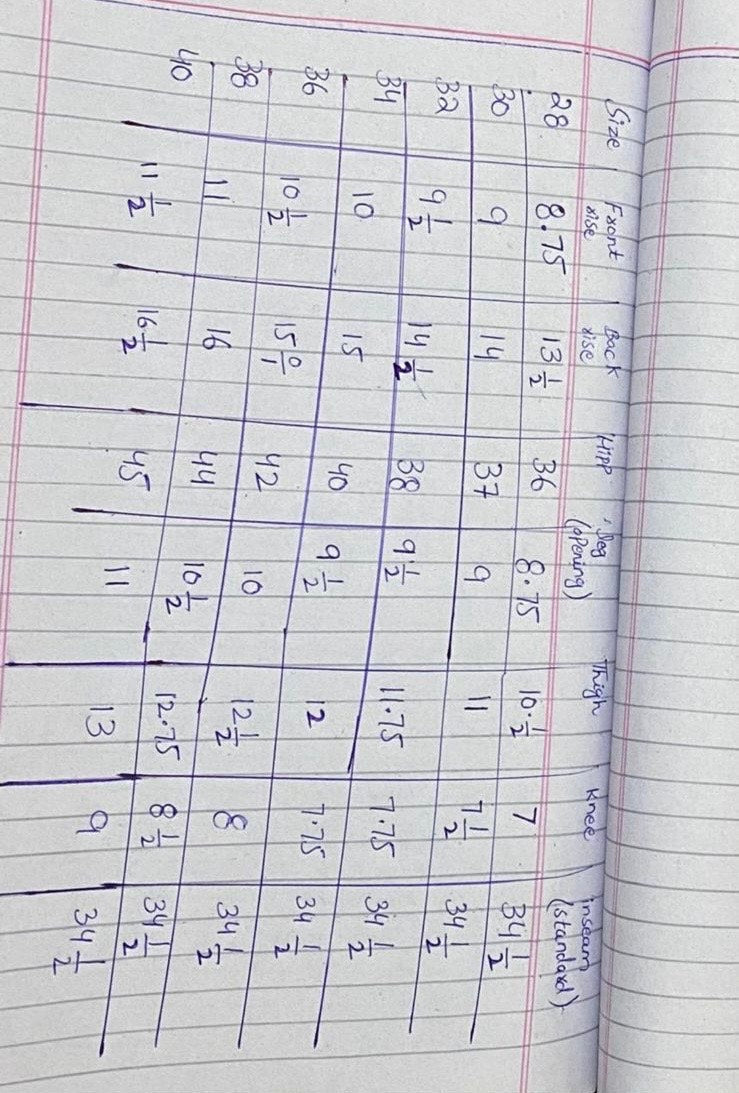 Size Front rise Back rise Hipp Leg (opening) Thigh Knee inseam (standard)
28 8.75 13 1/2 36 8.75 10.1/2 7 34 1/2
30 9 14 37 9 11 7 1/2 34 1/2
32 9 1/2 14 1/2 38 9 1/2 11.75 7.75 34 1/2
34 10 15 40 9 1/2 12 7.75 34 1/2
36 10 1/2 15 42 10 12 1/2 8 34 1/2
38 11 16 44 10 1/2 12.75 8 1/2 34 1/2
40 11 1/2 16 1/2 45 11 13 9 34 1/2